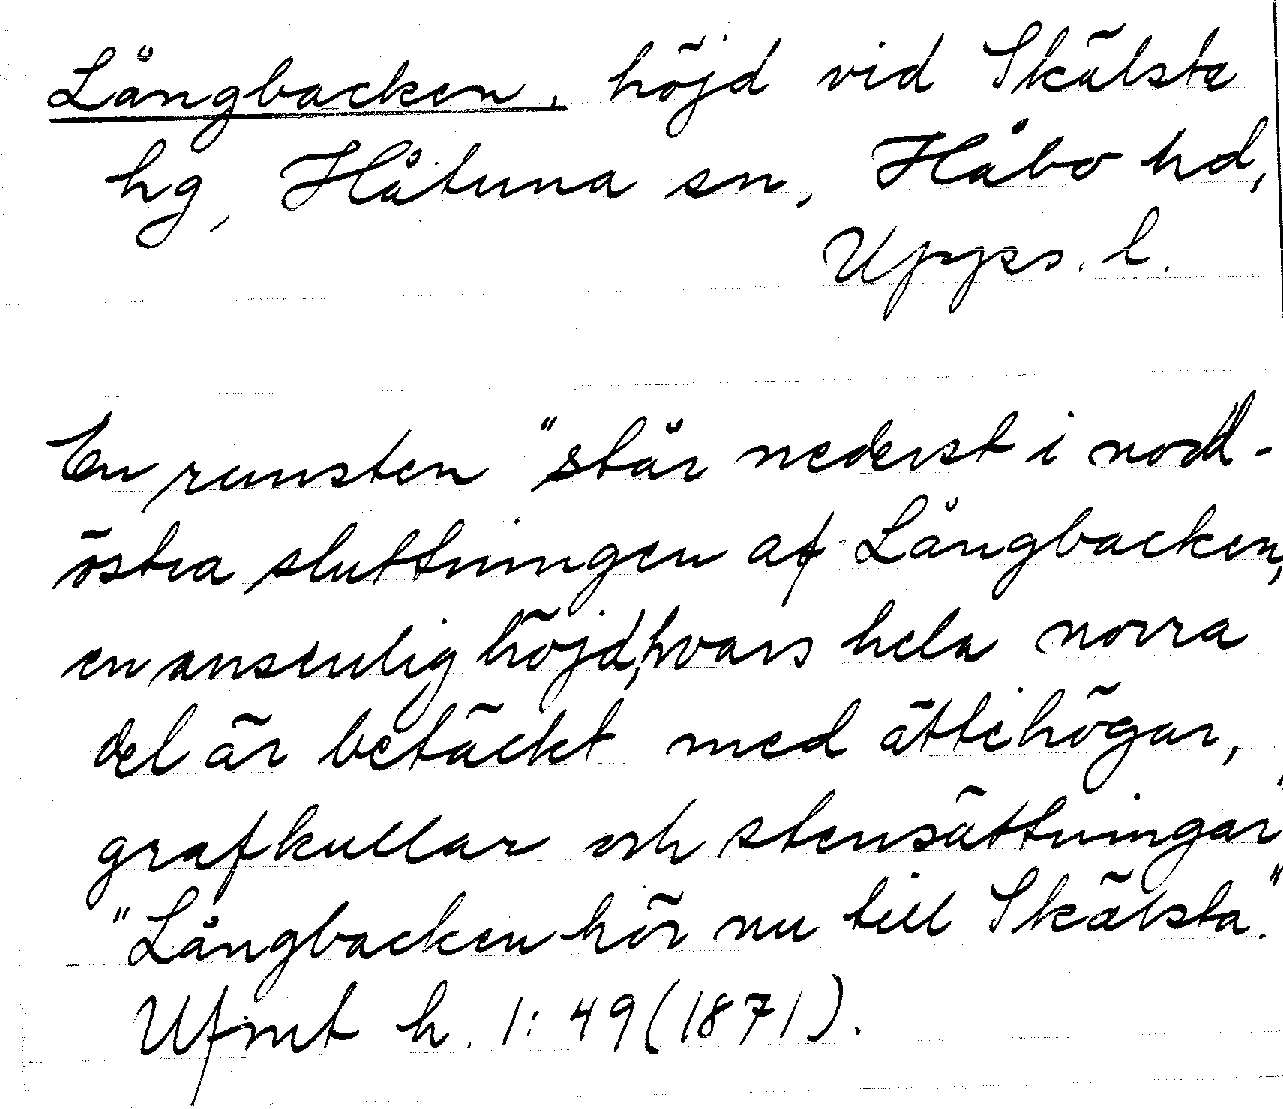 Långbacken, höjd vid Skälsta
hg, Håtuna sn, Håbo hd,
Upps. l.
En runsten "står nederst i nord-
östra sluttningen af Långbacken,
en ansenlig höjd, hvars hela norra
del är betäckt med ättehögar,
grafkullar och stensättningar"
"Långbacken hör nu till Skälsta."
Ufmt h. 1: 49 (1871).